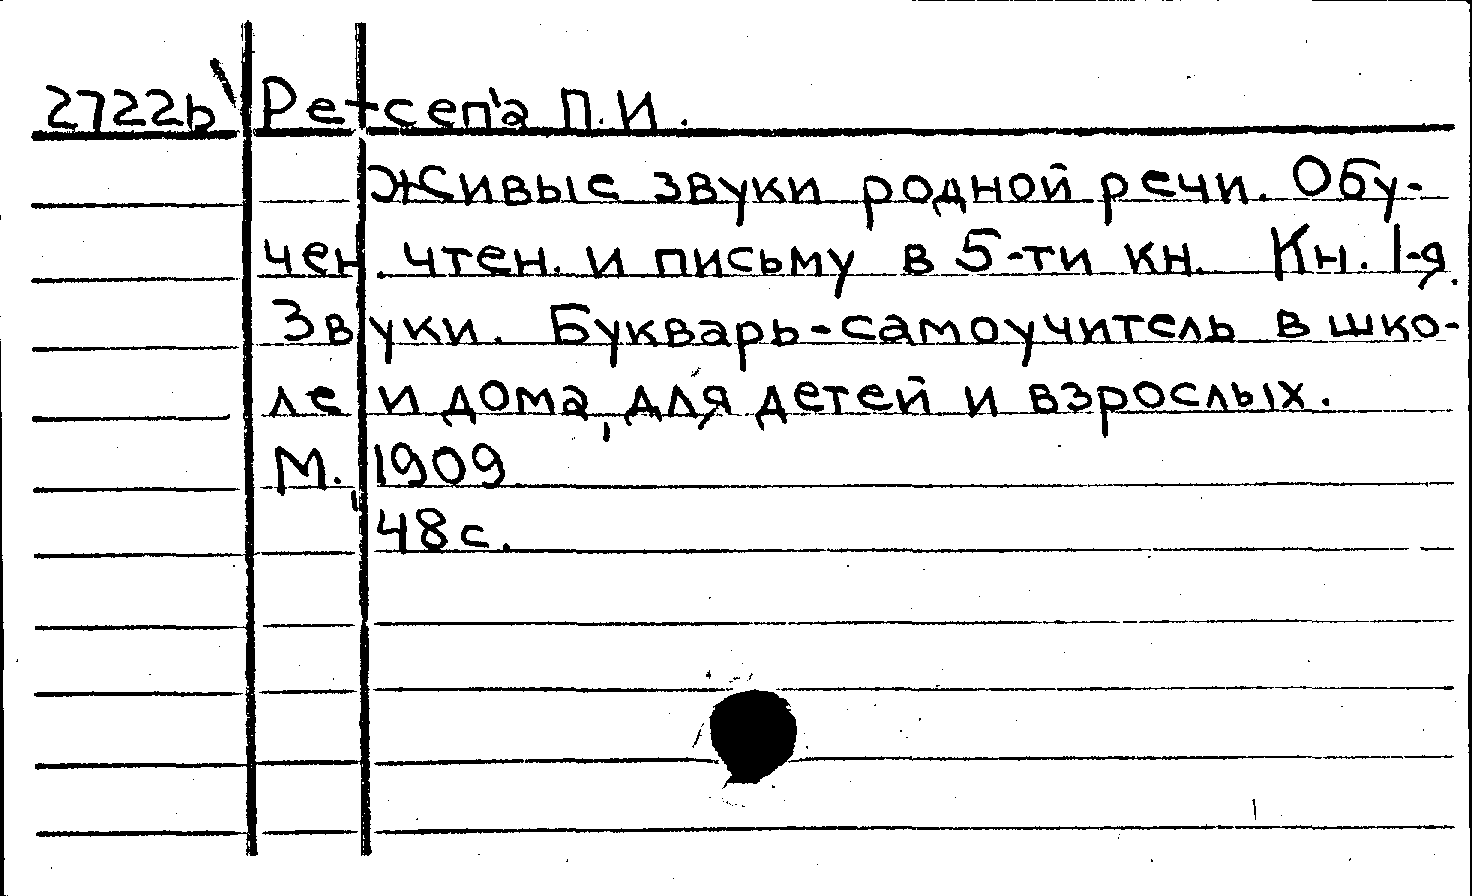 2722ь Ретсеп'а П.И.
Живые звуки родной речи. Обу-
чен. чтен. и письму в 5-ти кн. Кн. 1-я.
Звуки. Букварь-самоучитель в шко-
ле и дома, для детей и взрослых.
М. 1909
48 с.